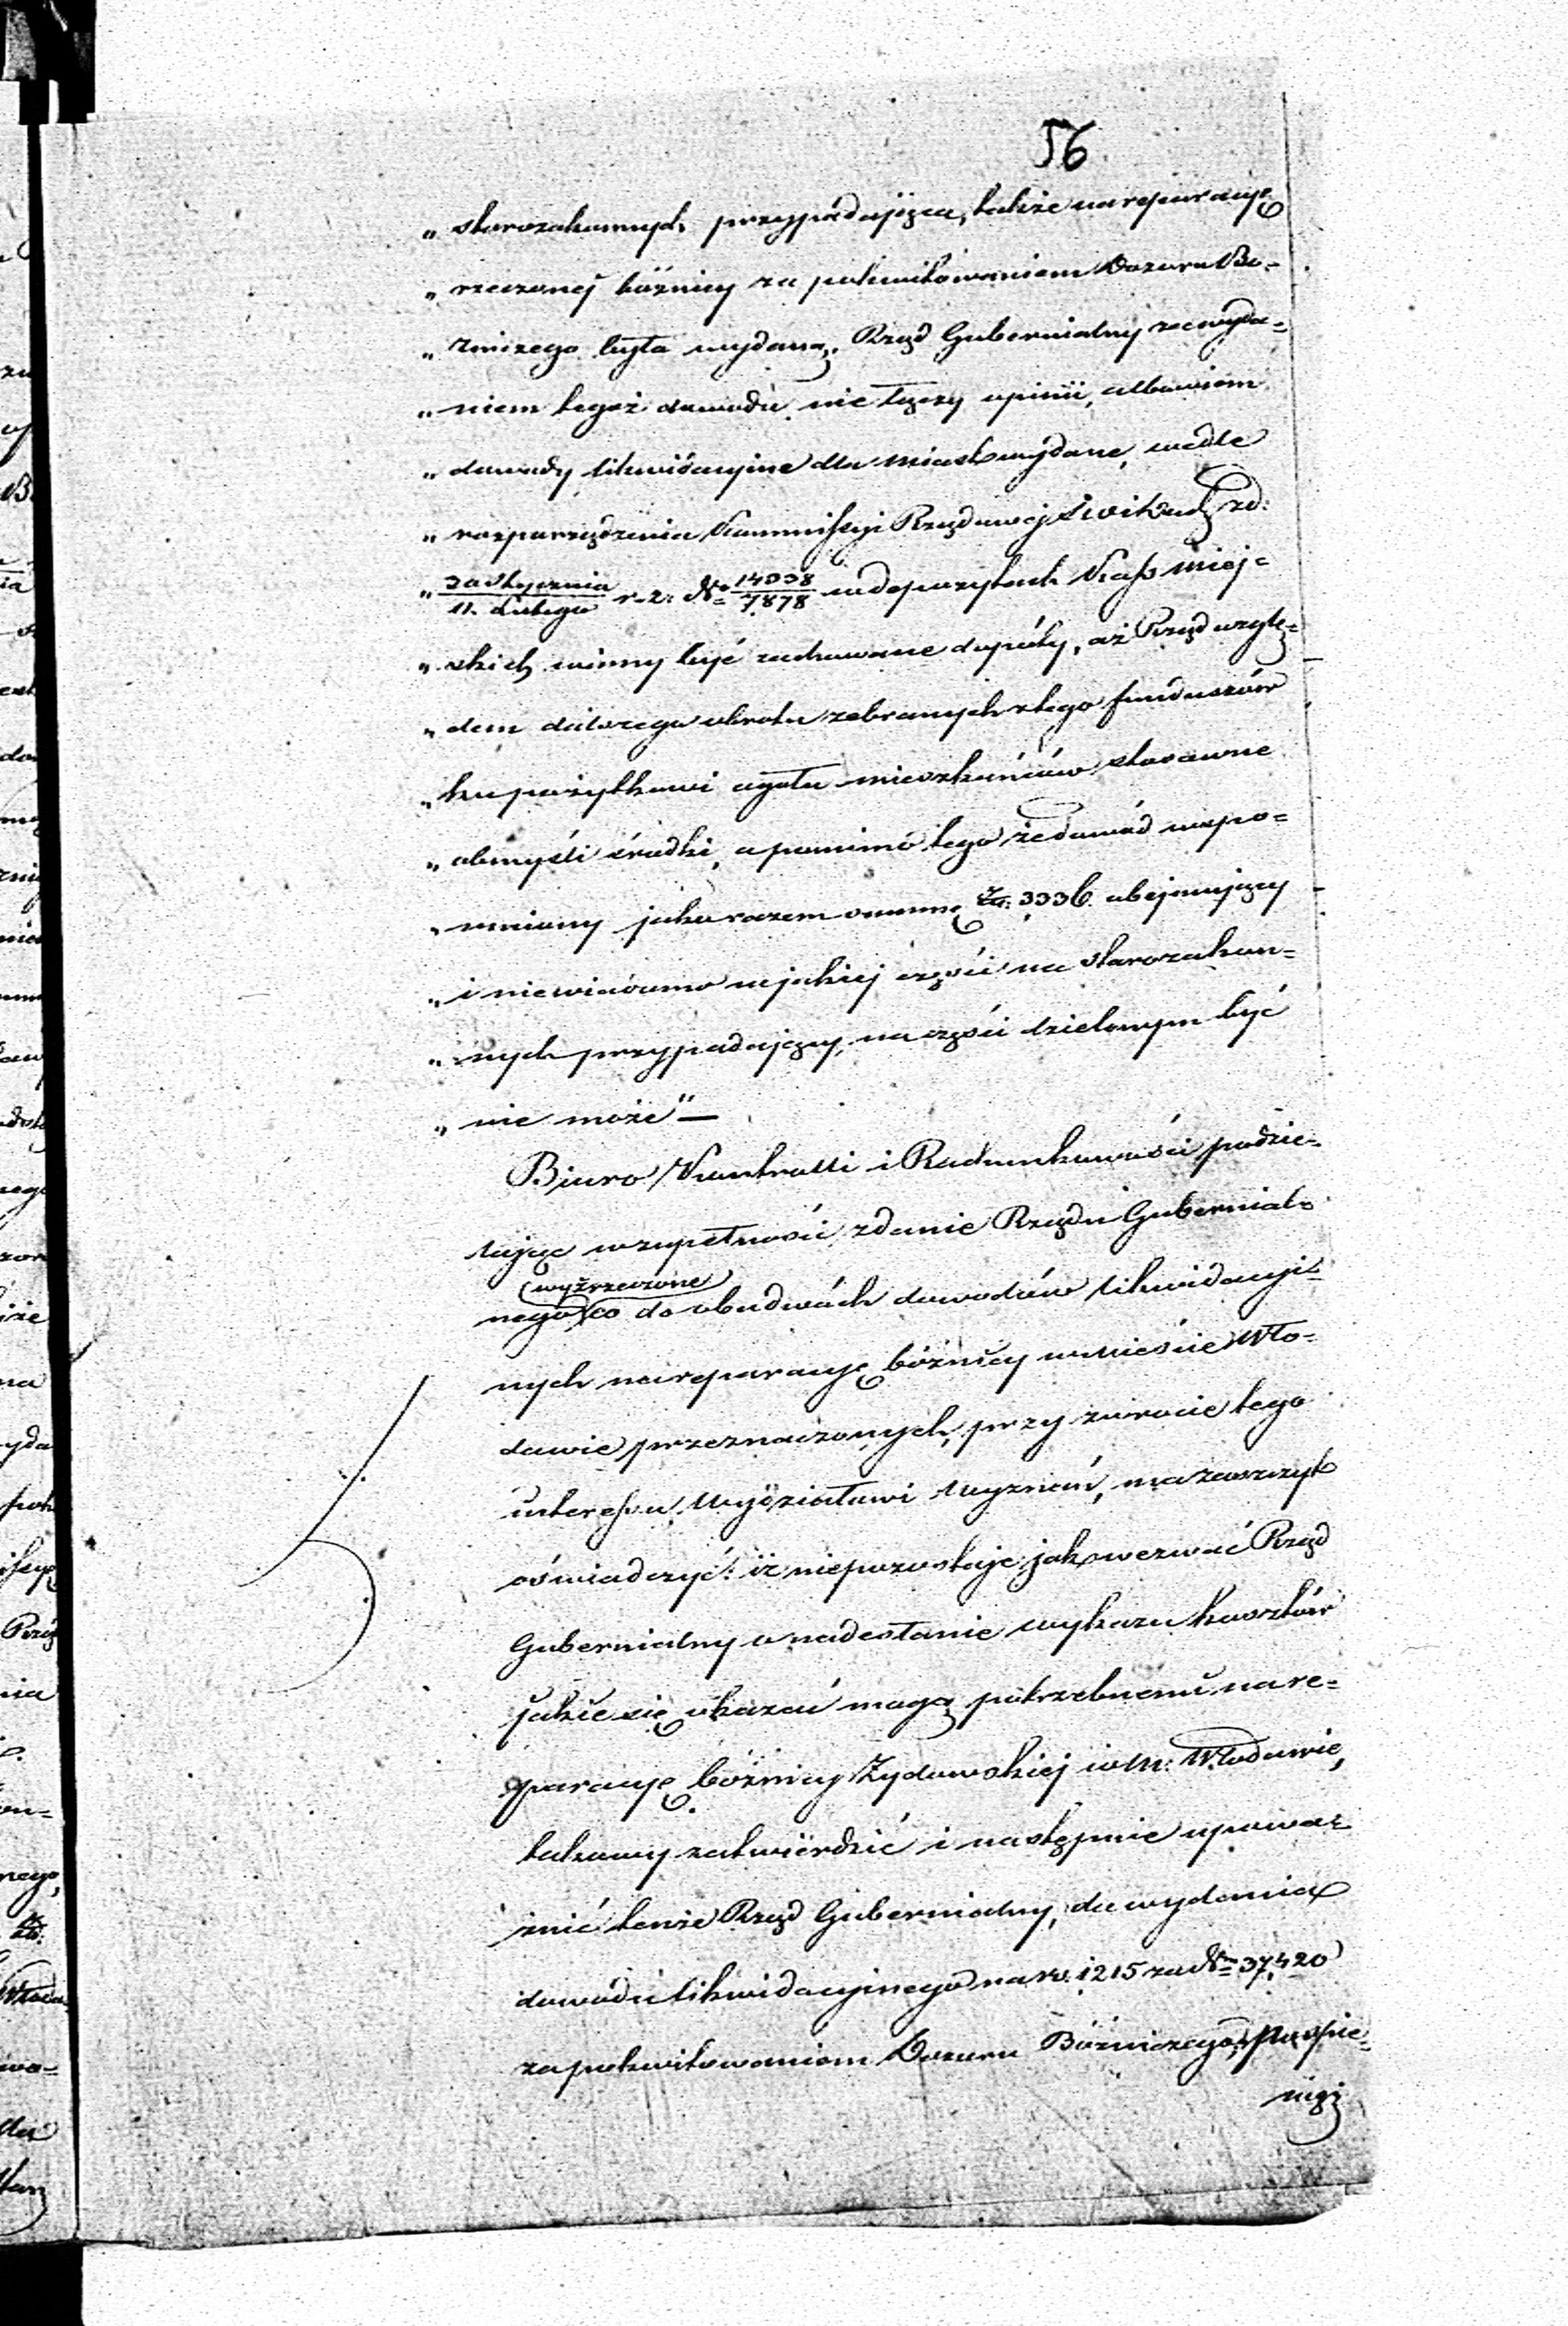 56
„ starozakonnych przypadająca, także na reparacyę
„ rzeczonej bóżnicy za pokwitowaniem Dozoru Bo-
„ żniczego była wydaną. Rząd Gubernialny za wyda-
„ niem tegoż dowodu nie łączy opinii, albowiem
„ dowody likwidacyjne dla miast wydane, wedle
„ rozporządzenia Kommissyi Rządowej S W i D zd:
„ 30 Stycznia / 11. Lutego r. z: № 14338 / 7878 w depozytach Kass Miej-
„ skich winny być zachowane dopóty, aż Rząd wzglę-
„ dem dalszego obrotu zebranych z tego funduszów
„ ku pożytkowi ogółu mieszkańców stosowne
„ obmyśli środki, a pomimo tego że dowód wspo-
„ mniony jako razem summę Złp: 3336. obejmujący
„ i niewiadomo w jakiej części na starozakon-
„ nych przypadający, na części dzielonym być
„ nie może" —
Biuro Kontrolli i Rachunkowości podzie-
lając w zupełności zdanie Rządu Gubernial-
wyżrzeczone
nego co do obudwóch dowodów likwidacyj-
nych na reparacyę bóżnicy w mieście Wło-
dawie przeznaczonych, przy zwrocie tego
interessu Wydziałowi Wyznań, ma zaszczyt
oświadczyć: iż niepozostaje jak wezwać Rząd
Gubernialny o nadesłanie wykazu kosztów
jakie się okazać mogą potrzebnemi na re-
paracyę bóżnicy Żydowskiej w m: Włodawie,
takowy zatwierdzić i następnie upowa-
żnić tenże Rząd Gubernialny, do wydania
dowodu likwidacyjnego na rs. 1215 za № 37,420
za pokwitowaniem Dozoru Bóżniczego,
niąż